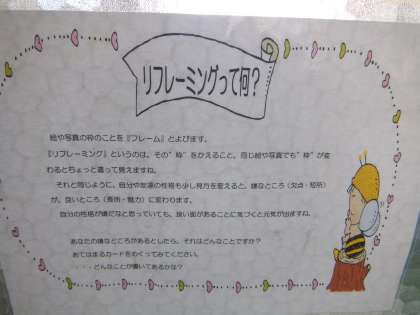 リフレーミングって何?
絵や写真の枠のことを『フレーム』とよびます。
『リフレーミング』というのは、その"枠"をかえること。同じ絵や写真でも"枠"が変
わるとちょっと違って見えますね。
それと同じように、自分や友達の性格も少し見方を変えると、嫌なところ(欠点・短所)
が、良いところ(長所・魅力)に変わります。
自分の性格が嫌だなと思っていても、良い面があることに気づくと元気が出ますね。
あなたの嫌なところがあるとしたら、それはどんなことですか?
あてはまるカードをめくってみてください。
・・・・どんなことが書いてあるかな?